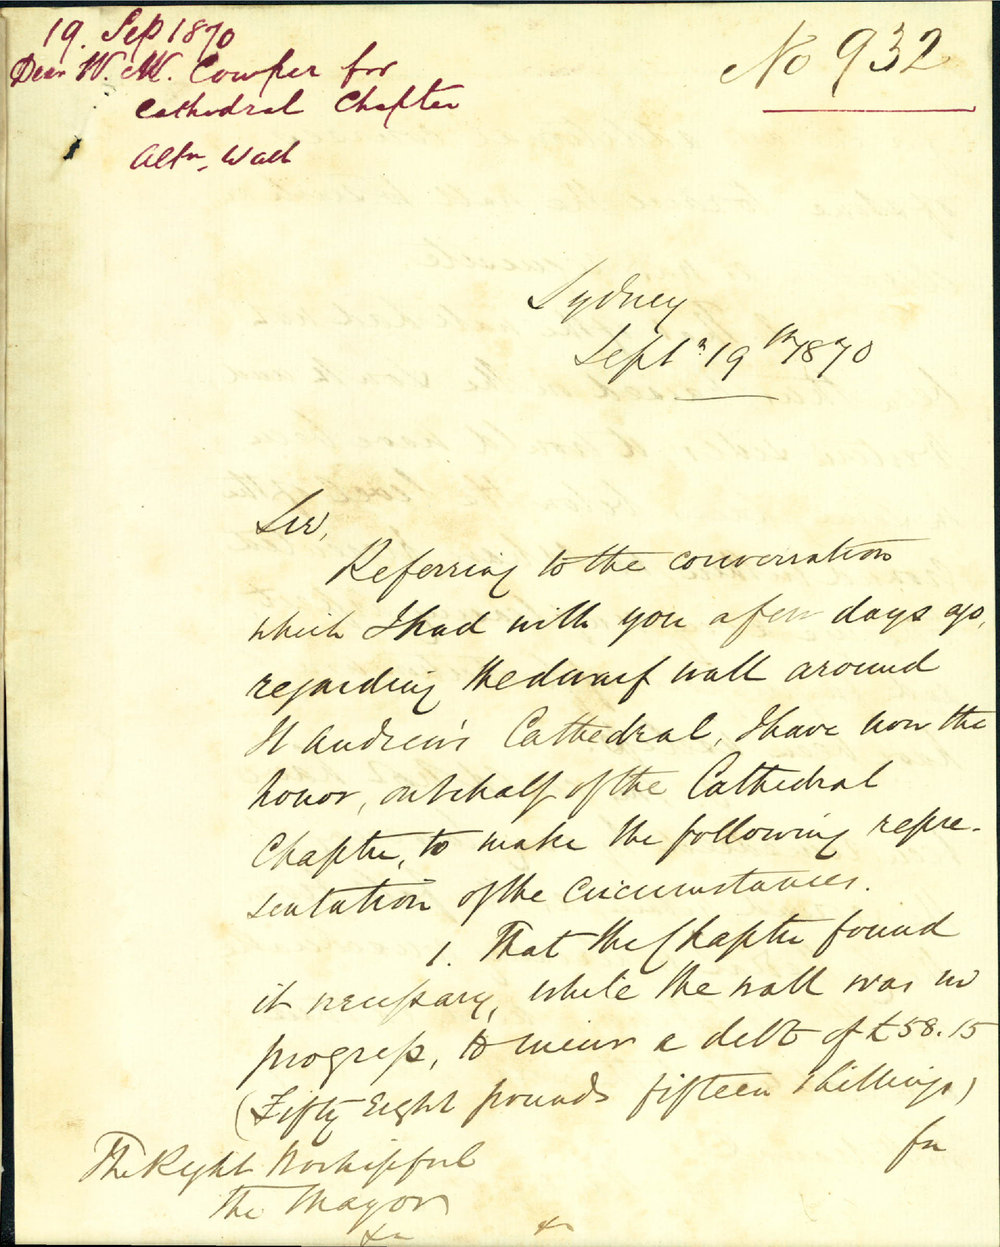 19. Sep 1870
Dean W. M. Cowper for
Cathedral Chapter
Altn. Wall
No 932
Sydney
Septr 19th 1870
Sir,
Referring to the conversation
which I had with you a few days ago,
regarding the dwarf wall around
St Andrew's Cathedral, I have now the
honor, on behalf of the Cathedral
Chapter, to make the following repre-
sentation of the circumstances.
1. That the Chapter found
it necessary, while the wall was in
progress, to incur a debt of £58.15
(Fifty Eight pounds fifteen shillings)
for
The Right Worshipful
The Mayor
&c &c